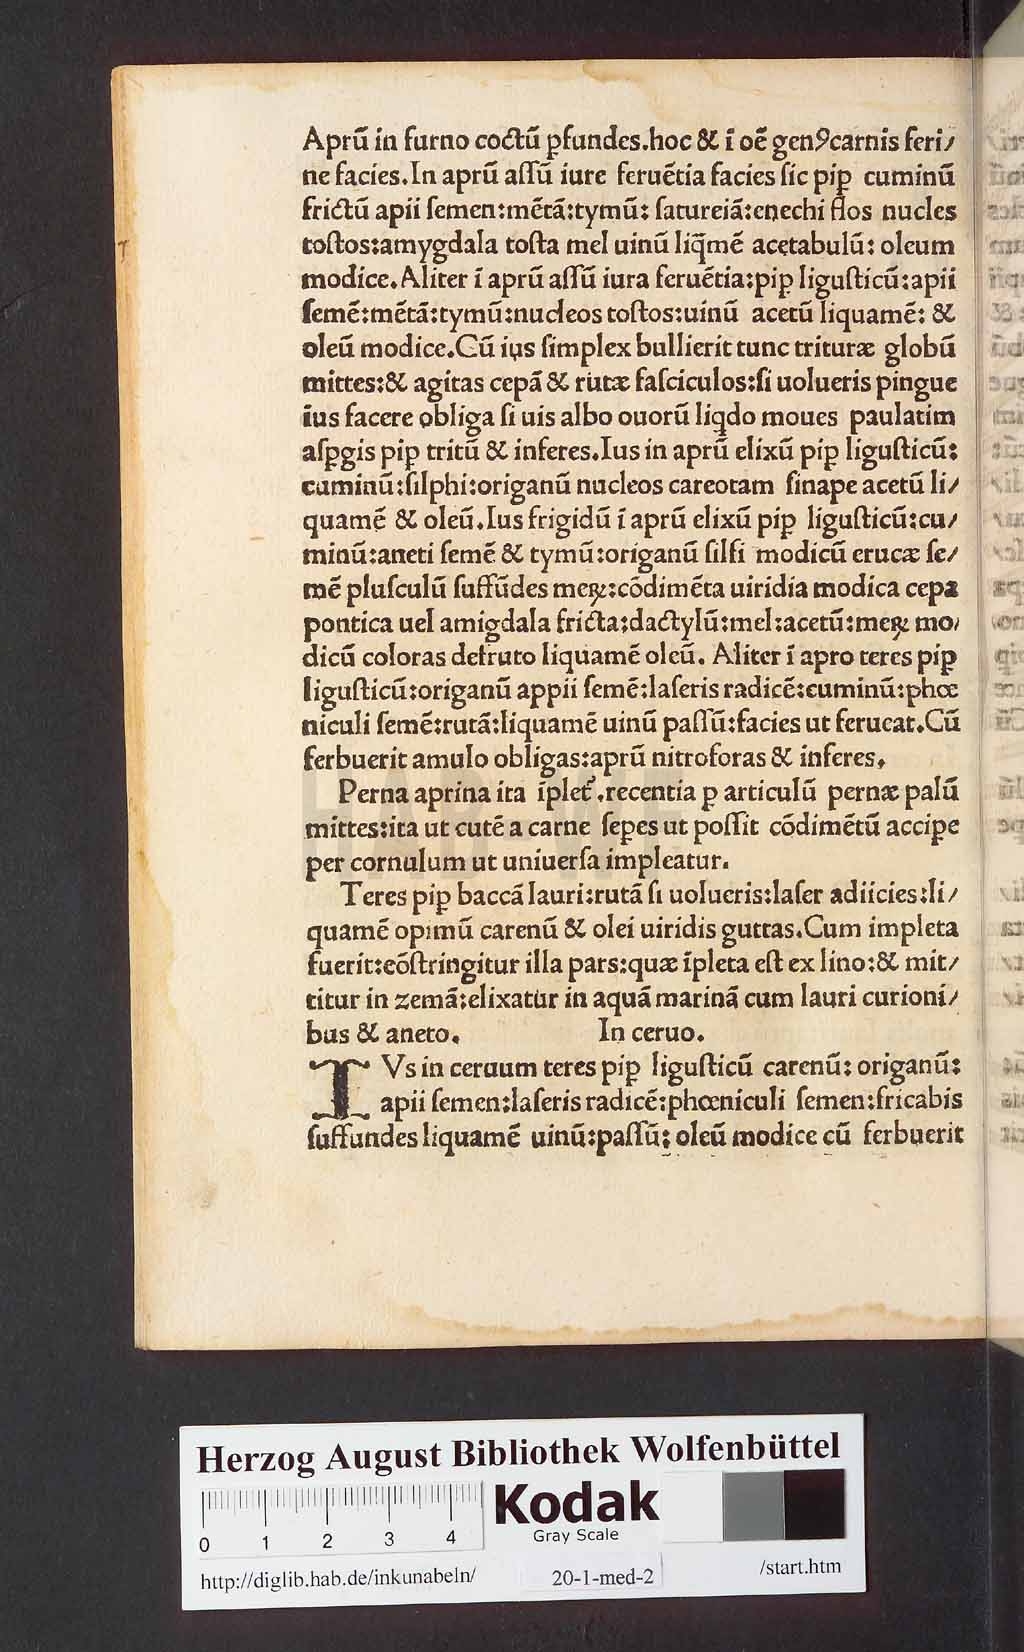 Aprũ in furno coctũ ꝑfundes.hoc & ĩ oẽ genꝰcarnis feri/
ne facies.In aprũ aſſũ iure feruẽtia facies ſic pip̱ cuminũ
frictũ apii ſemen:mẽtã:tymũ: ſatureiã:enechi flos nucles
toſtos:amygdala toſta mel uinũ liq̃mẽ acetabulũ: oleum
modice.Aliter ĩ aprũ aſſũ iura feruẽtia:pip̱ liguſticũ:apii
ſemẽ:mẽtã:tymũ:nucleos toſtos:uinũ acetũ liquamẽ: &
oleũ modice.Cũ ius ſimplex bullierit tunc trituræ globũ
mittes:& agitas cepã & rutæ faſciculos:ſi uolueris pingue
ius facere obliga ſi uis albo ouorũ liqdo moues paulatim
aſꝑgis pip̱ tritũ & inferes.Ius in aprũ elixũ pip̱ liguſticũ:
cuminũ:ſilphi:origanũ nucleos careotam ſinape acetũ li/
quamẽ & oleũ.Ius frigidũ ĩ aprũ elixũ pip̱ liguſticũ:cu/
minũ:aneti ſemẽ & tymũ:origanũ ſilfi modicũ erucæ ſe/
mẽ pluſculũ ſuffũdes meꝝ:cõdimẽta uiridia modica cepa
pontica uel amigdala fricta:dactylũ:mel:acetũ:meꝝ mo/
dicũ coloras defruto liquamẽ oleũ. Aliter ĩ apro teres pip̱
liguſticũ:origanũ appii ſemẽ:laſeris radicẽ:cuminũ:phœ
niculi ſemẽ:rutã:liquamẽ uinũ paſſũ:facies ut ferueat.Cũ
ferbuerit amulo obligas:aprũ nitroforas & inferes.
Perna aprina ita ĩplet᷑.recentia ꝑ articulũ pernæ palũ
mittes:ita ut cutẽ a carne ſepes ut poſſit cõdimẽtũ accipe
per cornulum ut uniuerſa impleatur.
Teres pip̱ baccã lauri:rutã ſi uolueris:laſer adiicies:li/
quamẽ opimũ carenũ & olei uiridis guttas.Cum impleta
fuerit:cõſtringitur illa pars:quæ ĩpleta eſt ex lino:& mit/
titur in zemã:elixatur in aquã marinã cum lauri curioni/
bus & aneto. In ceruo.
IVs in ceruum teres pip̱ liguſticũ carenũ: origanũ:
apii ſemen:laſeris radicẽ:phœniculi ſemen:fricabis
ſuffundes liquamẽ uinũ:paſſũ: oleũ modice cũ ferbuerit
Herzog August Bibliothek Wolfenbüttel
Kodak
Gray Scale
0 1 2 3 4
http://diglib.hab.de/inkunabeln/ 20-1-med-2 /start.htm